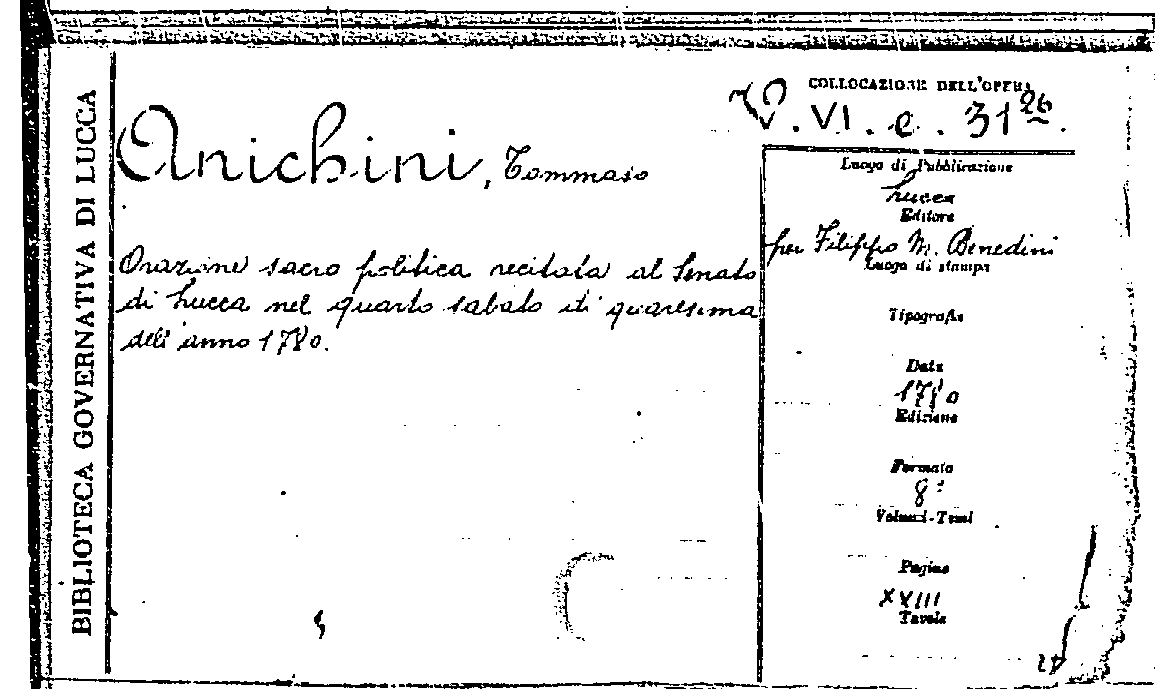 BIBLIOTECA GOVERNATIVA DI LUCCA
Anichini, Tommaso
Orazione sacro politica recitata al Senato
di Lucca nel quarto sabato di quaresima
dell'anno 1780.
COLLOCAZIONE DELL'OPERA
VI. e. 31 26.
Luogo di Pubblicazione
Lucca
Editore
per Filippo M. Benedini
Luogo di stampa
Tipografia
Data
1780
Edizione
Formato
8°
Volumi-Tomi
Pagine
XVIII
Tavole